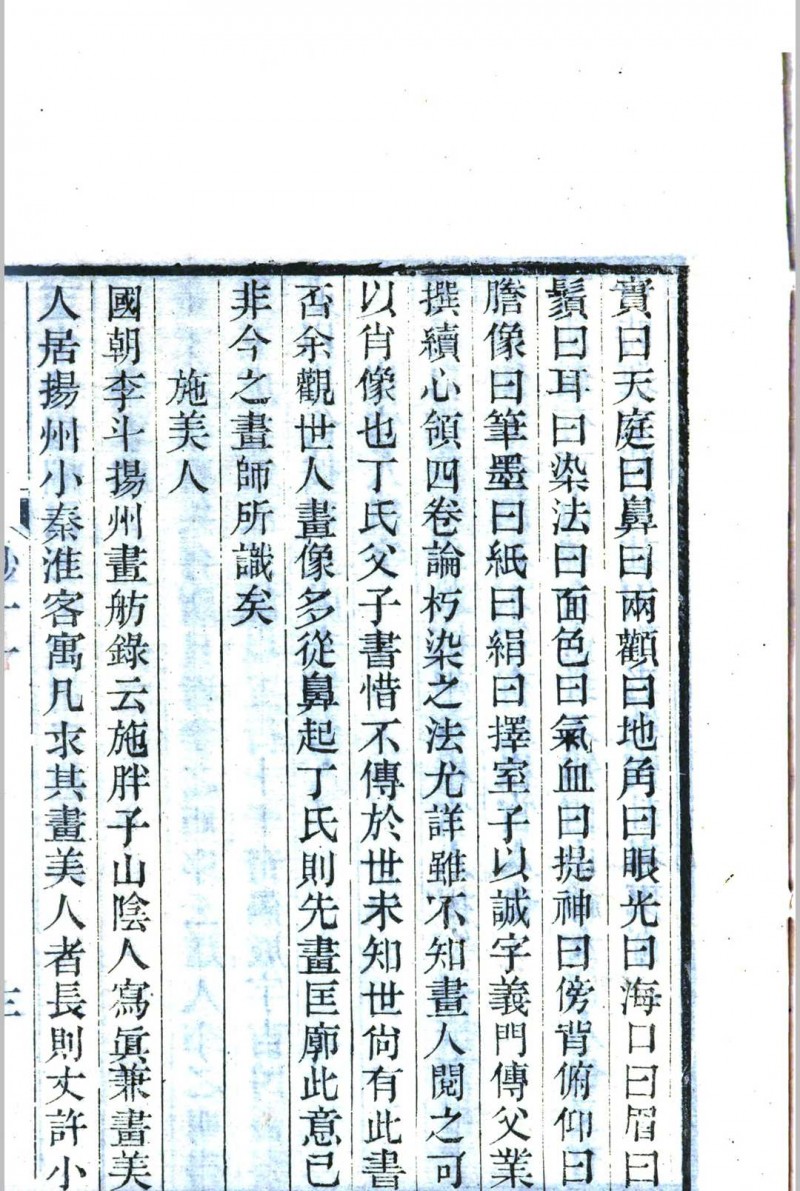 實曰天庭曰鼻曰兩顴曰地角曰眼光曰海口曰眉曰
鬚曰耳曰染法曰面色曰氣血曰提神曰傍背俯仰曰
膽像曰筆墨曰紙曰絹曰擇室子以誠字義門傳父業
撰續心領四卷論朽染之法尤詳雖不知畫人閱之可
以肖像也丁氏父子書惜不傳於世未知世尙有此書
否余觀世人畫像多從鼻起丁氏則先畫匡廓此意已
非今之畫師所識矣
施美人
國朝李斗揚州畫舫錄云施胖子山陰人寫眞兼畫美
人居揚州小秦淮客寓凡求其畫美人者長則丈許小
三